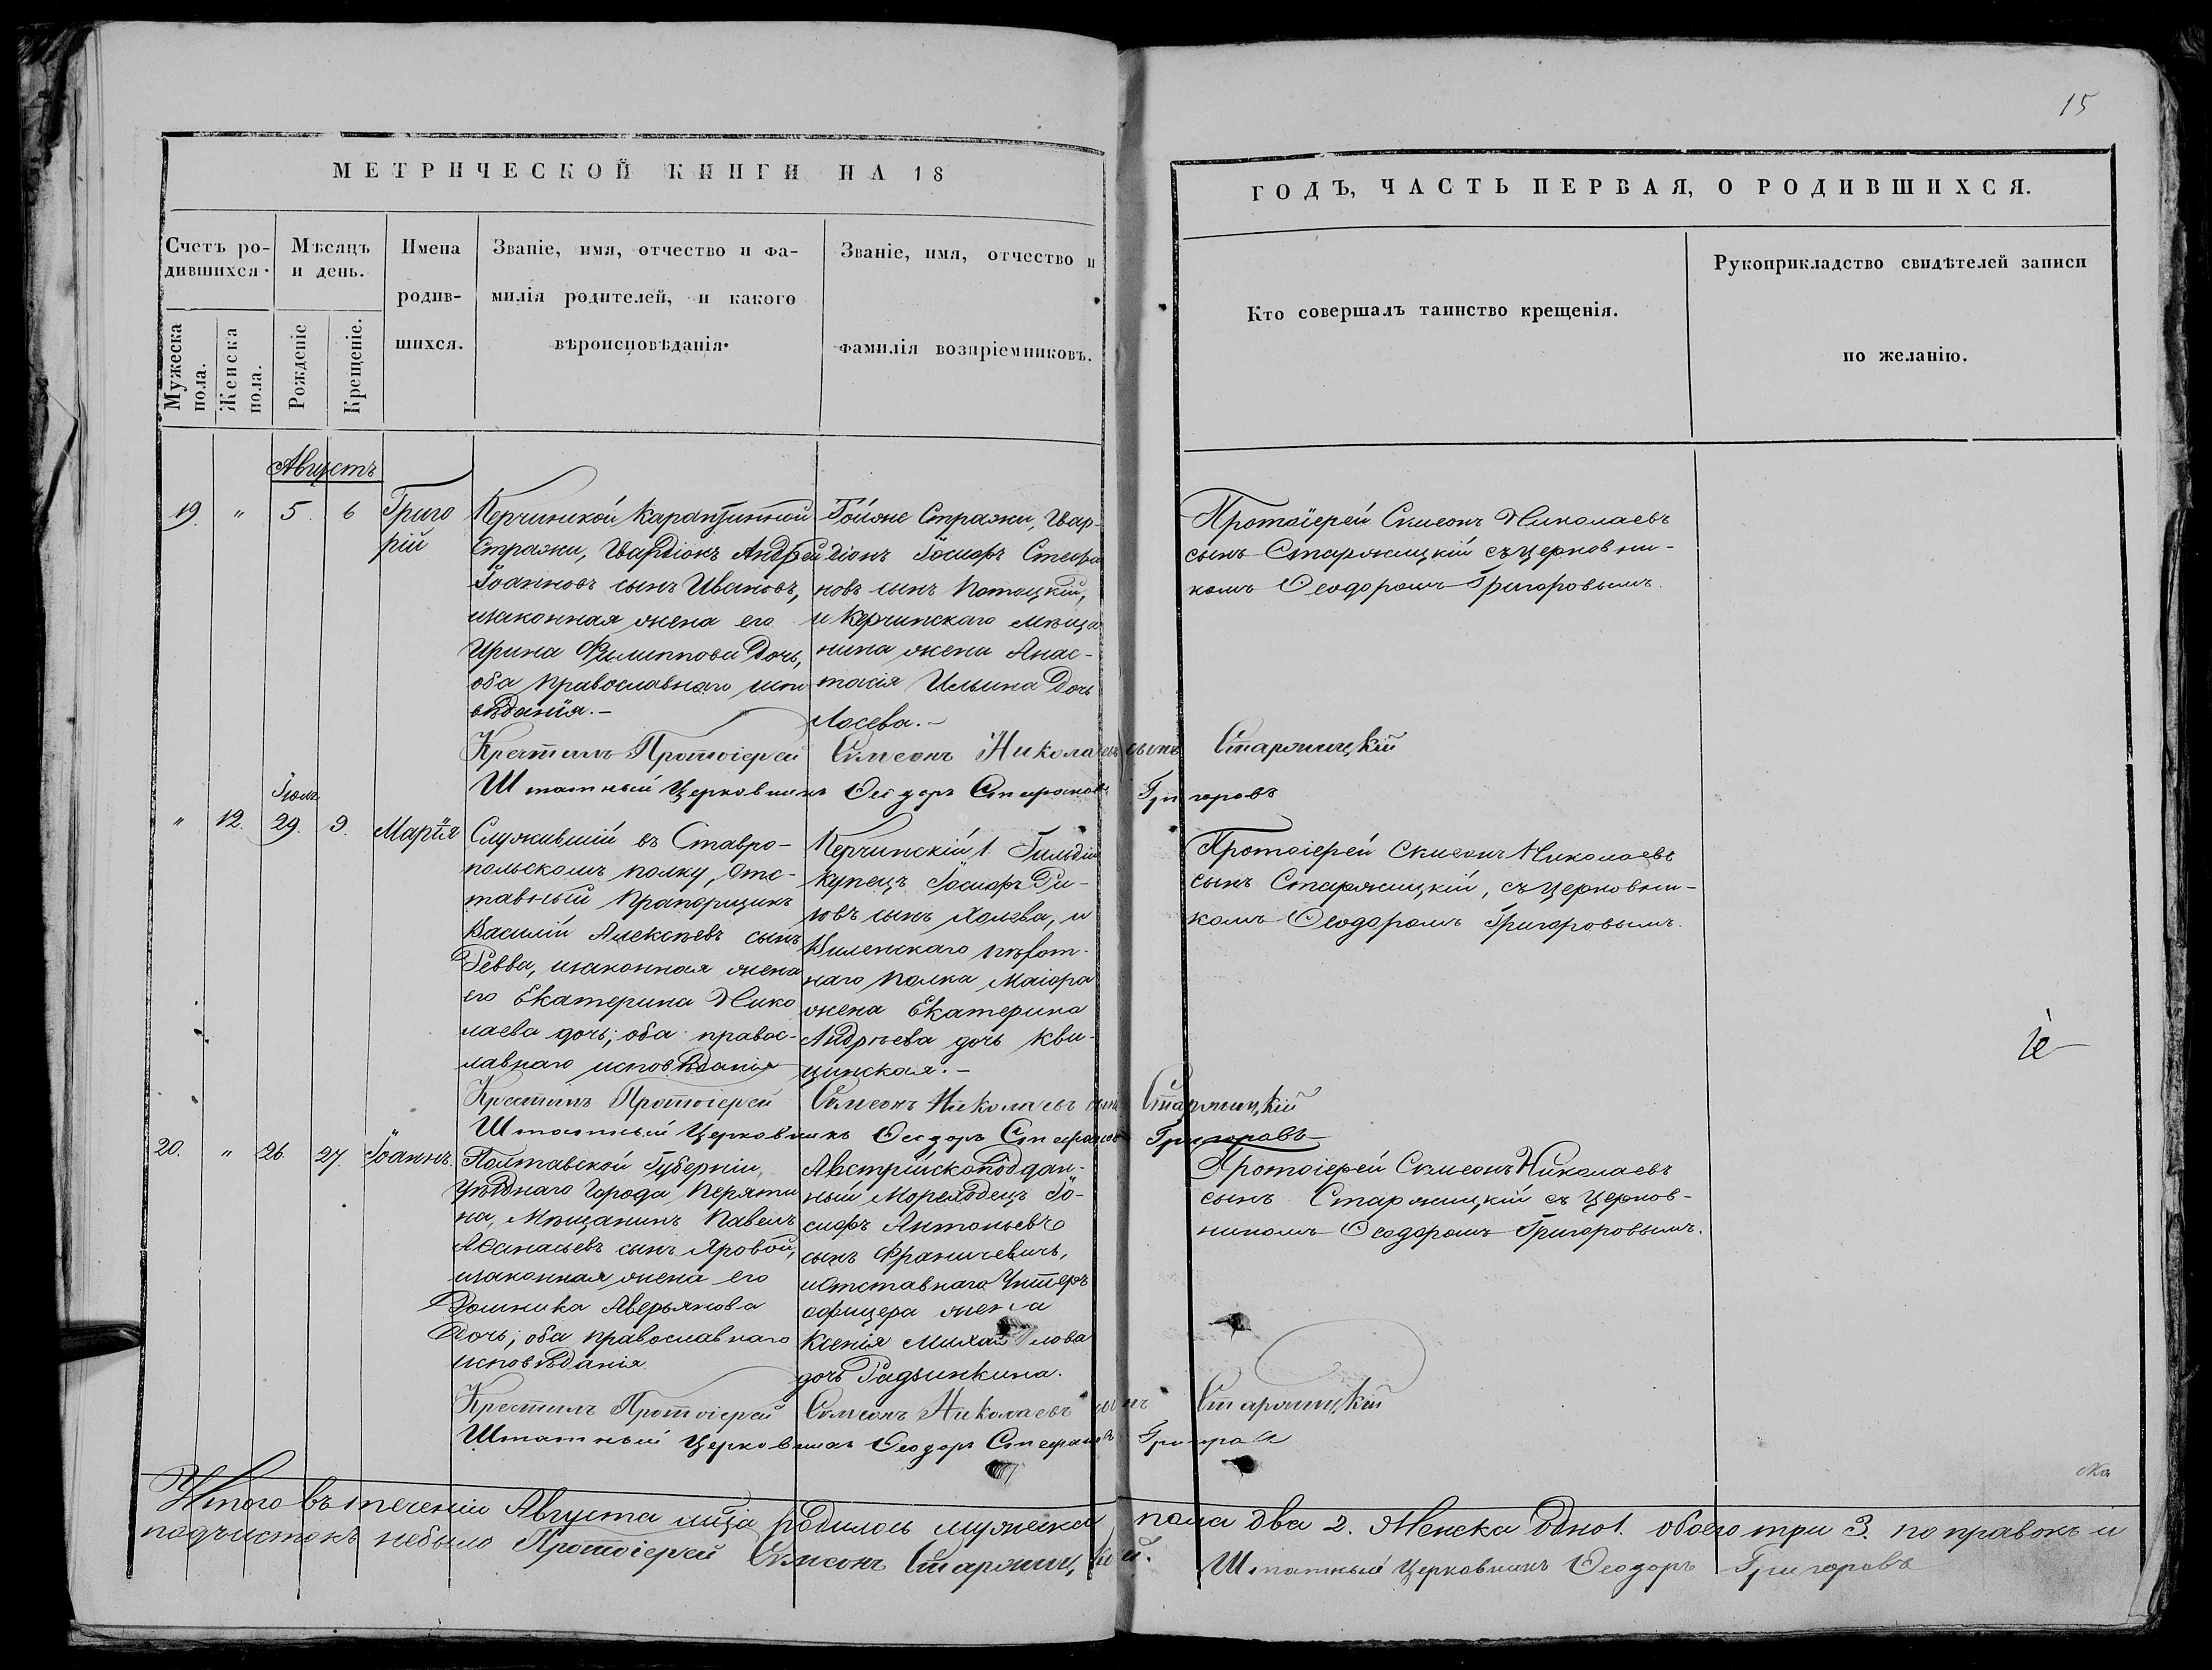 15
МЕТРИЧЕСКОЙ КНИГИ НА 18
ГОДЪ, ЧАСТЬ ПЕРВАЯ, О РОДИВШИХСЯ.
Счетъ ро-
дившихся.
Мужеска
пола.
Женска
пола.
Мѣсяцъ
и день.
Рожденіе
Крещеніе.
Имена
родив-
шихся.
Званіе, имя, отчество и фа-
милія родителей, и какого
вѣроисповѣданія.
Званіе, имя, отчество и
фамилія воспріемниковъ.
Кто совершалъ таинство крещенія.
Рукоприкладство свидѣтелей записи
по желанію.
Августъ
19. " 5 6
Григо
рій
Керчинской Карантинной
Стражи, Гвардіонъ Андрей
Іоанновъ сынъ Ивановъ,
изаконная жена его
Ирина Филиппова дочь,
оба православнаго испо
вѣданія.-
Тойже Стражи, Гвар-
діонъ Іосифъ Стефа
новъ сынъ Потоцкій,
и Керчинскаго мѣща
нина жена Анас-
тасія Ильина дочь
Лосева.-
Протоіерей Симеонъ Николаевъ
сынъ Старжицкій съ церковни-
комъ Ѳеодоромъ Григоровымъ.
Крестилъ Протоіерей Симеонъ Николаевъ сынъ Старжицкій
Штатный Церковникъ Ѳеодоръ Стефановъ Григоровъ
Іюль
" 12. 29. 9.
Марія
Служившій въ Ставро-
польскомъ полку, Отс-
тавный Прапорщикъ
Василій Алексѣевъ сынъ
Ревва, изаконная жена
его Екатерина Нико
лаева дочь; оба правос-
лавнаго исповѣданія
Керчинскій 1. Гильдіи
Купецъ Іосифъ
сынъ Холева, и
Виленскаго пѣхот-
наго полка Маіора
жена Екатерина
Андреева дочь Кви-
цинская.-
Протоіерей Симеонъ Николаевъ
сынъ Старжицкій, съ церковни-
комъ Ѳеодоромъ Григоровымъ.
Крестилъ Протоіерей Симеонъ Николаевъ сынъ Старжицкій
Штатный Церковникъ Ѳеодоръ Стефановъ Григоровъ
20. " 26 27.
Іоаннъ.
Полтавской Губерніи,
Уѣзднаго города Пиряти
на, Мѣщанинъ Павелъ
Аѳанасьевъ сынъ Яровой,
изаконная жена его
Домника Аверьянова
дочь; оба православнаго
исповѣданія
Австрійскоподдан-
ный Мореходецъ Іо-
сифъ Антоньевъ
сынъ Франичевичь,
иотставнаго Унтеръ
офицера жена
Ксенія Михайлова
дочь Радзинкина.
Протоіерей Симеонъ Николаевъ
сынъ Старжицкій съ церков-
никомъ Ѳеодоромъ Григоровымъ.
Крестилъ Протоіерей Симеонъ Николаевъ сынъ Старжицкій
Штатный Церковникъ Ѳеодоръ Стефановъ Григоровъ
Итого въ теченіи Августа мѣца родилось мужеска пола два 2. Женска одно 1. обоего три 3. поправокъ и
подчистокъ небыло Протоіерей Симеонъ Старжицкій.
Штатный Церковникъ Ѳеодоръ Григоровъ